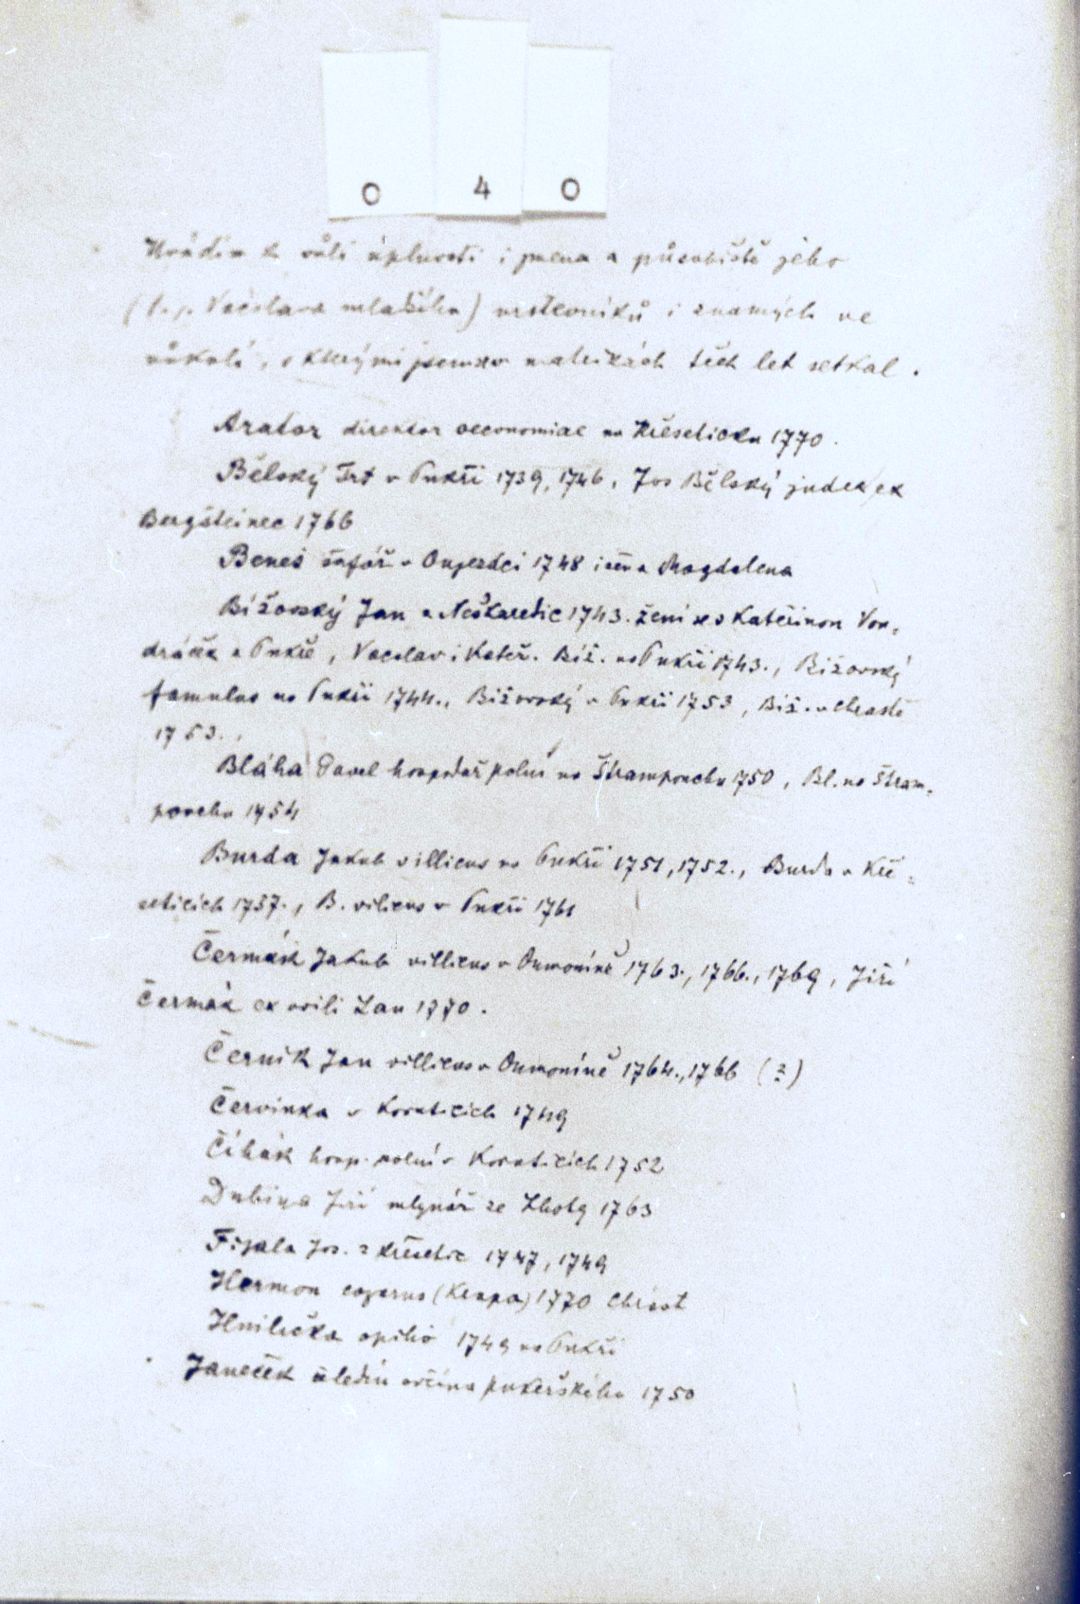 0 4 0
Uvádím k vůli úplnosti i jména a působiště jeho
(t.j. Václava mladšího) vrstevníků i známých ve
vůkolí, s kterými jsem se v matrikách těch let setkal.
Arator direktor oeconomiae na Křeseticku 1770.
Bělský Frt v Pukři 1739, 1746, Jos Bělský judex ex
Bergšteinec 1766
Beneš šafář v Oujezdci 1748 i žena Magdalena
Bížovský Jan z Neškaredic 1743. žení se s Kateřinou Von-
dráček z Pukře, Vacslav i Kateř. Bíž. na Pukři 1743., Bížovský
famulus na Pukři 1744., Bížovský v Pukři 1753, Bíž. v Chrastě
1753.,
Bláha Pavel hospodář polní na Štrampouchu 1750, Bl. na Štram-
pouchu 1754
Burda Jakub villicus na Pukři 1751, 1752., Burda v Kře-
seticích 1737., B. vilicus v Pukři 1761
Čermák Jakub villicus v Oumoníně 1763., 1766., 1769, Jiří
Čermák ex Lan 1770.
Černík Jan villicus v Oumoníně 1764., 1766 (?)
Červinka v Koroticích 1749
Čihák hosp. polní v Koroticích 1752
Dubina Jiří mlynář ze Lhoty 1763
Fijala Jos. z Křesetic 1747, 1749
Hermon (Krupa) 1770 Chrást
Hnilička opilio 1749 na Pukři
Janeček ovčína pukeřského 1750